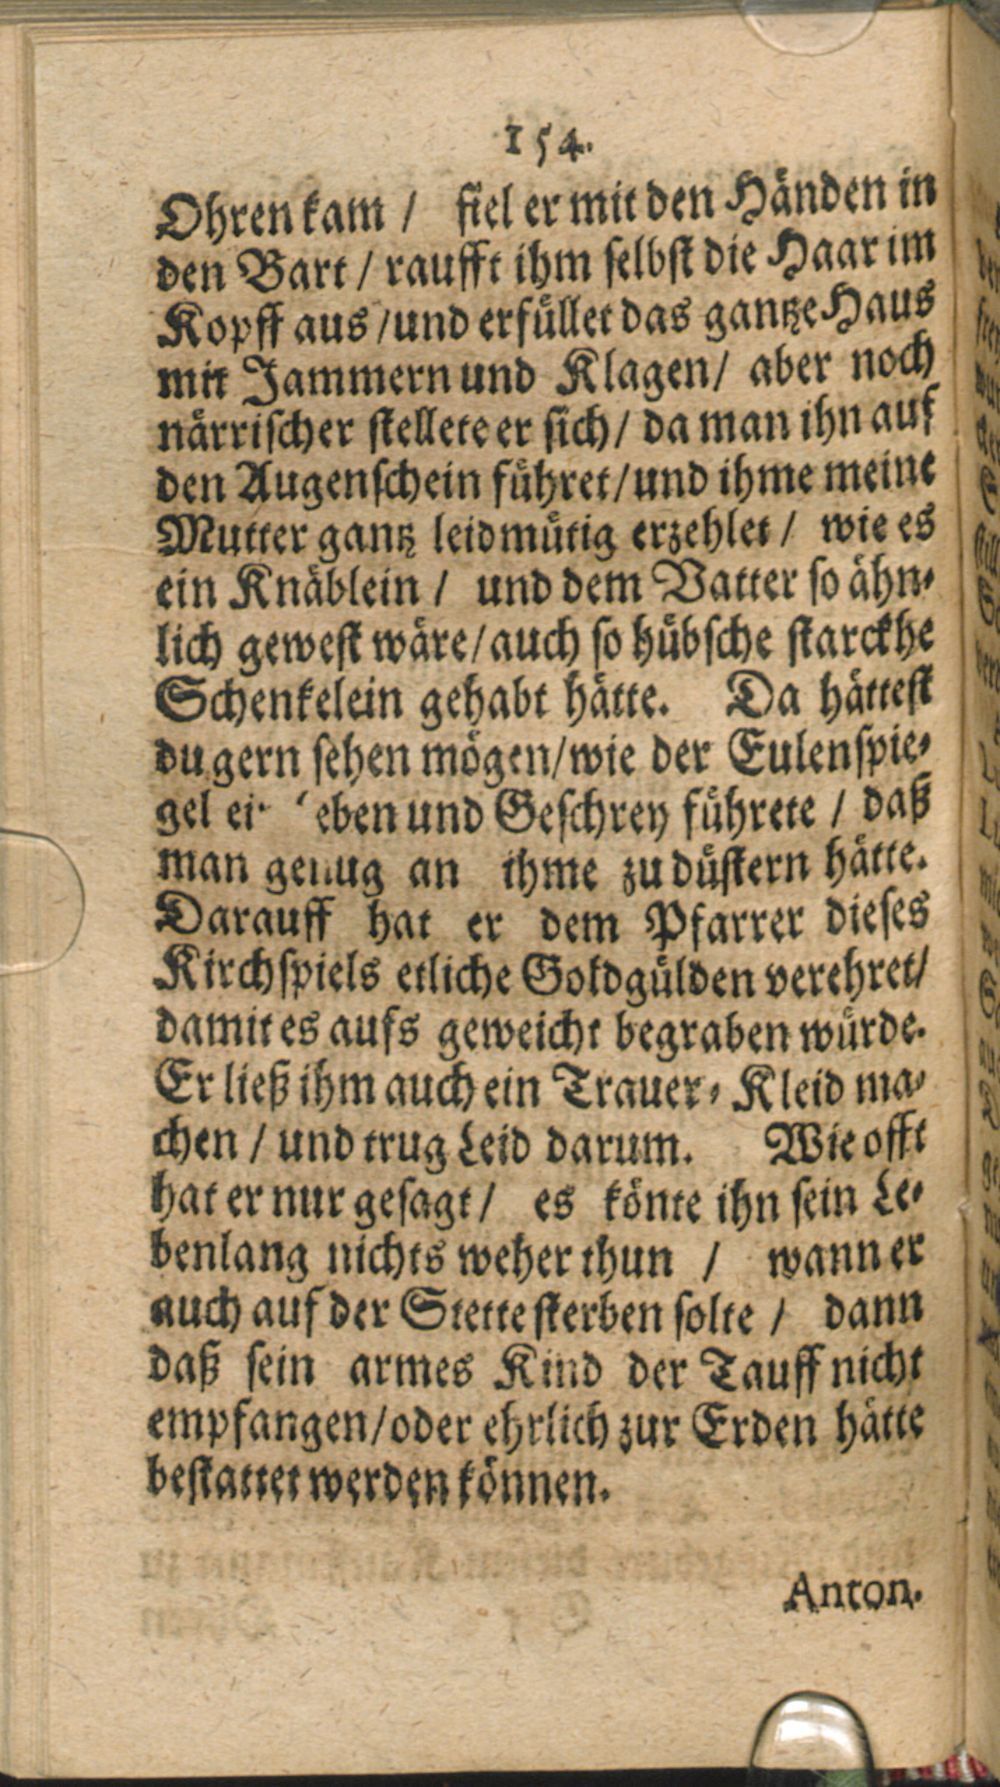 154.
Ohren kam / fiel er mit den Händen in
den Bart / raufft ihm selbst die Haar im
Kopff aus / und erfüllet das gantze Haus
mit Jammern und Klagen / aber noch
närrischer stellete er sich / da man ihn auf
den Augenschein führet / und ihme meine
Mutter gantz leidmütig erzehlet / wie es
ein Knäblein / und dem Vatter so ähn-
lich gewest wäre / auch so hübsche starckhe
Schenkelein gehabt hätte. Da hättest
du gern sehen mögen / wie der Eulenspie-
gel eben und Geschrey führete / daß
man genug an ihme zu düstern hätte.
Darauff hat er dem Pfarrer dieses
Kirchspiels etliche Goldgülden verehret /
damit es aufs geweicht begraben würde.
Er ließ ihm auch ein Trauer-Kleid ma-
chen / und trug Leid darum. Wie offt
hat er nur gesagt / es könte ihn sein Le-
benlang nichts weher thun / wann er
auch auf der Stette sterben solte / dann
daß sein armes Kind der Tauff nicht
empfangen / oder ehrlich zur Erden hätte
bestattet werden können.
Anton.